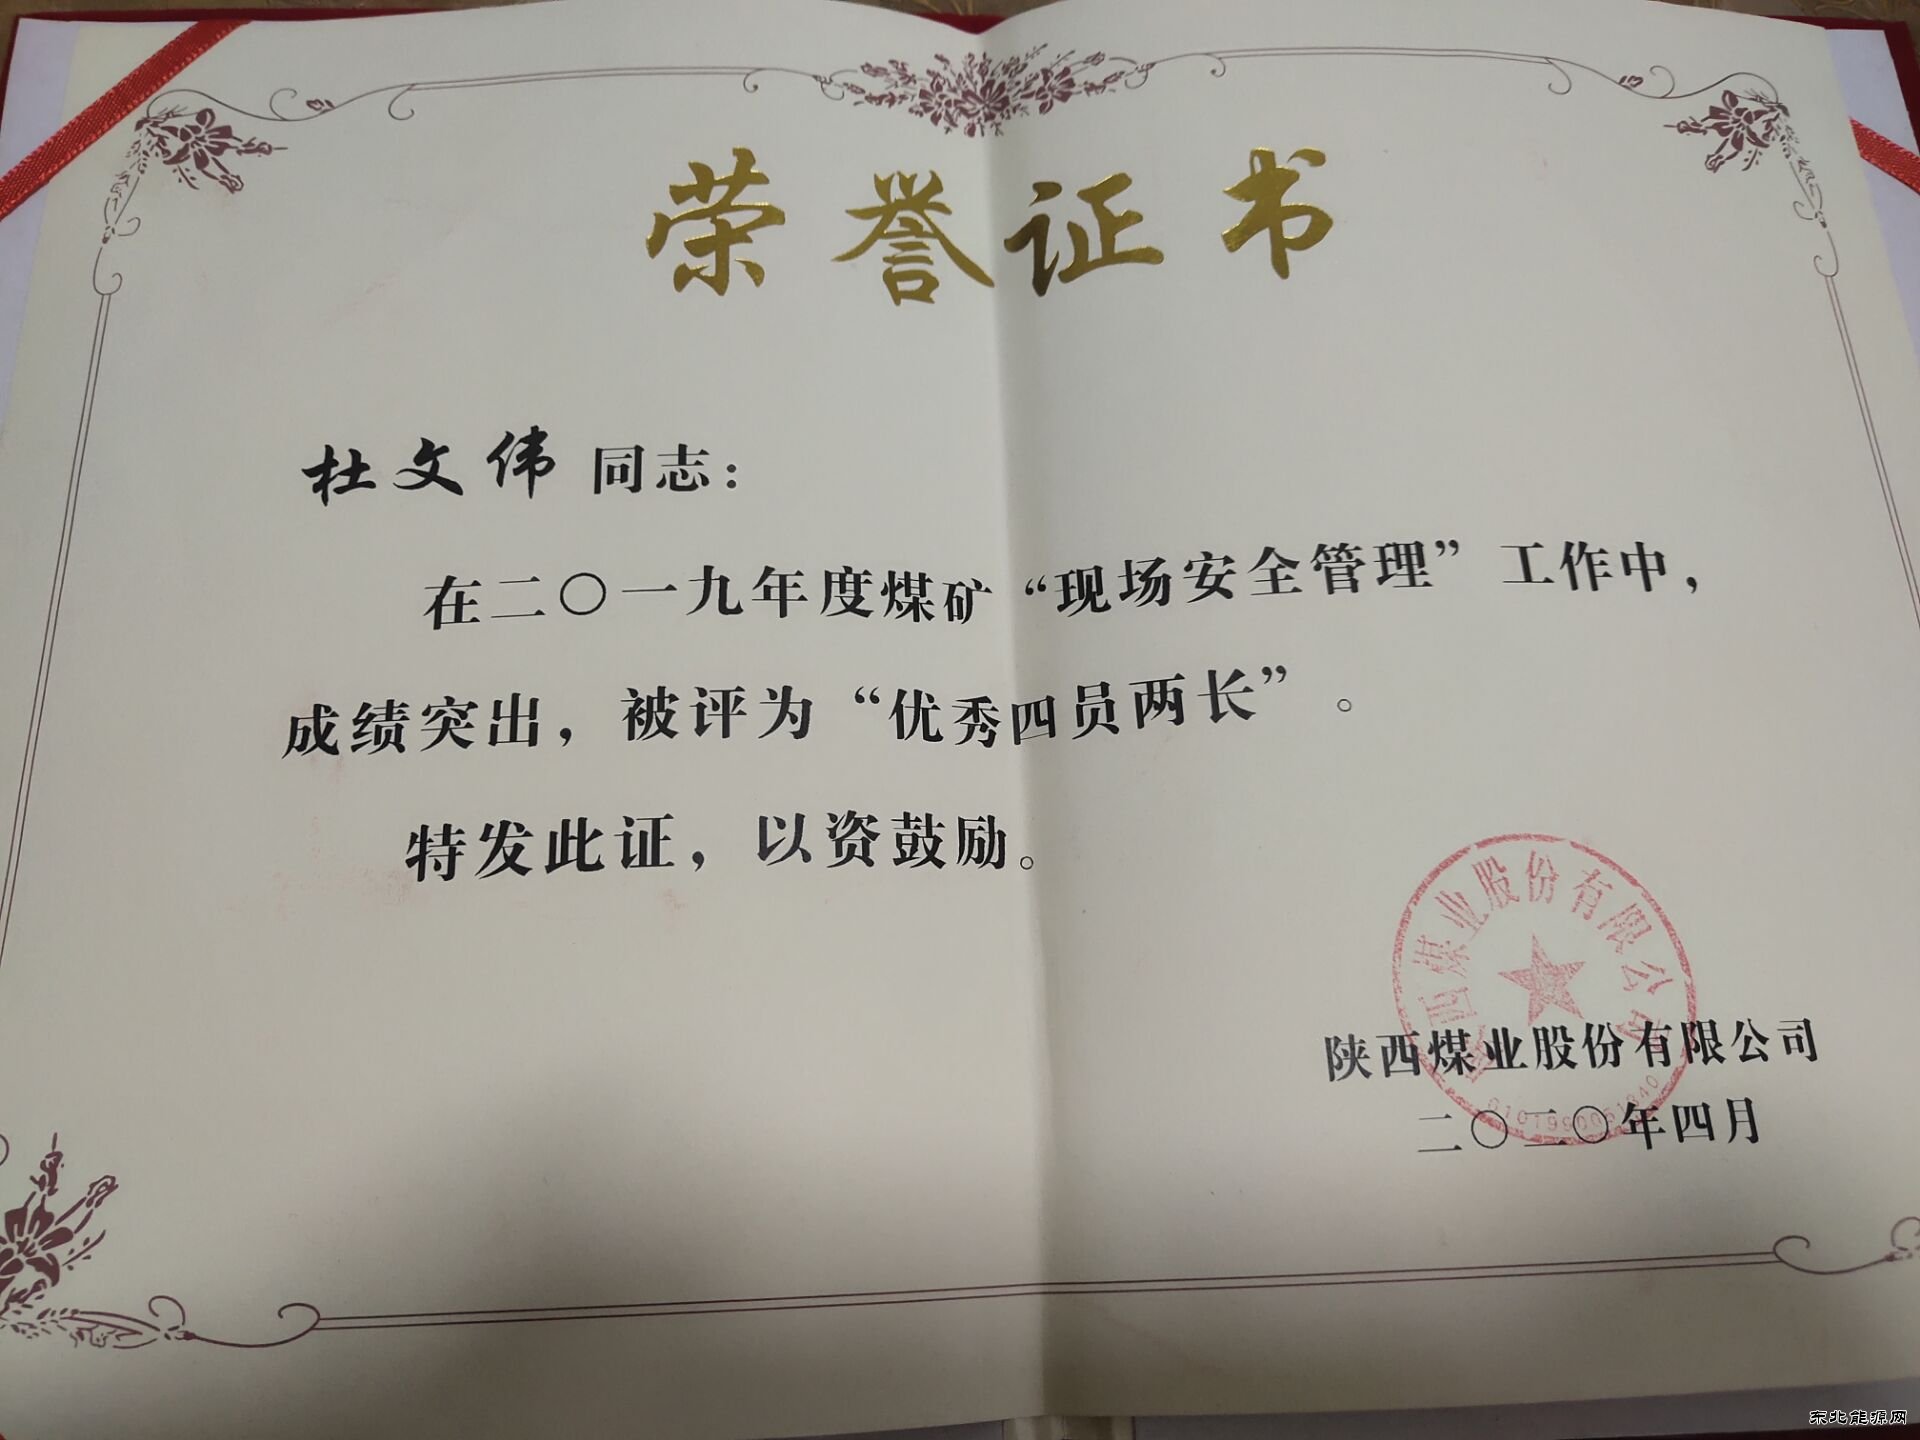 荣誉证书
杜文伟 同志：
在二〇一九年度煤矿“现场安全管理”工作中，
成绩突出，被评为“优秀四员两长”。
特发此证，以资鼓励。
西煤业股份有限公司
陕西煤业股份有限公司
二〇二〇年四月
东北能源网